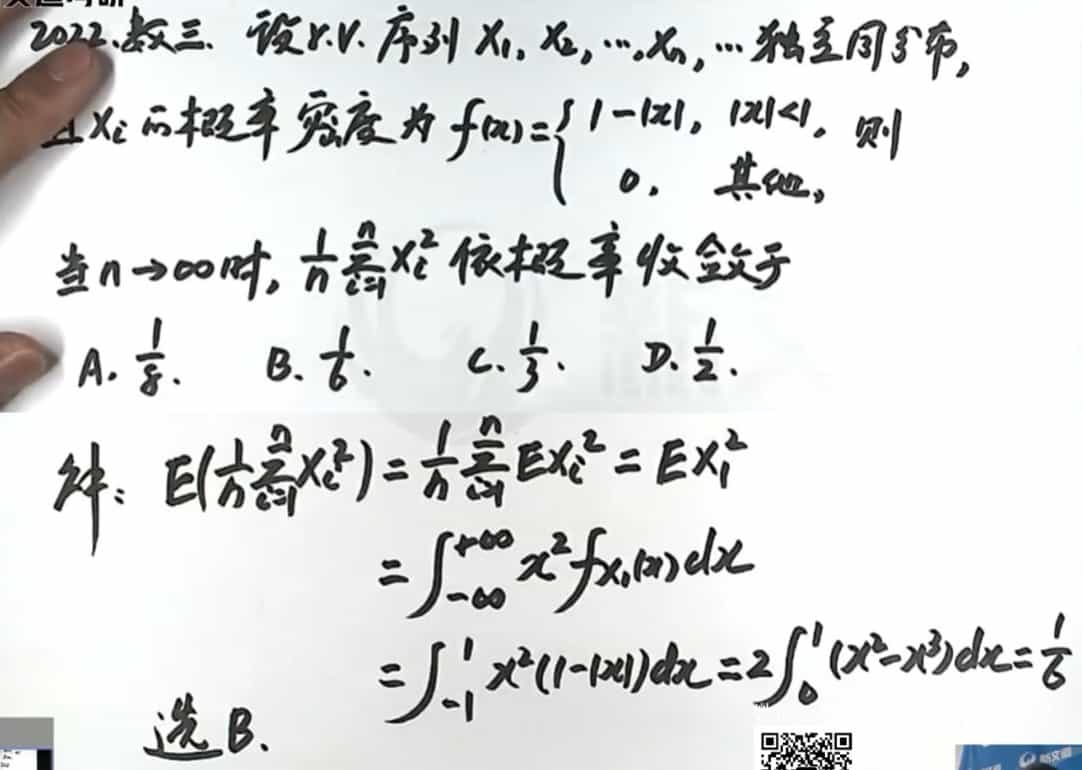 2022.数三. 设r.v.序列 X₁, X₂, …, Xₙ, … 独立同分布,
且Xᵢ的概率密度为 f(x)={1-|x|, |x|<1, 则
0, 其他,
当n→∞时, 1/n ∑ᵢ₌₁ⁿ Xᵢ² 依概率收敛于
A. 1/8. B. 1/6. C. 1/3. D. 1/2.
解: E(1/n ∑ᵢ₌₁ⁿ Xᵢ²) = 1/n ∑ᵢ₌₁ⁿ EXᵢ² = EX₁²
= ∫₋∞⁺∞ x² f_X₁(x) dx
= ∫₋₁¹ x²(1-|x|)dx = 2∫₀¹ (x²-x³)dx = 1/6
选B.